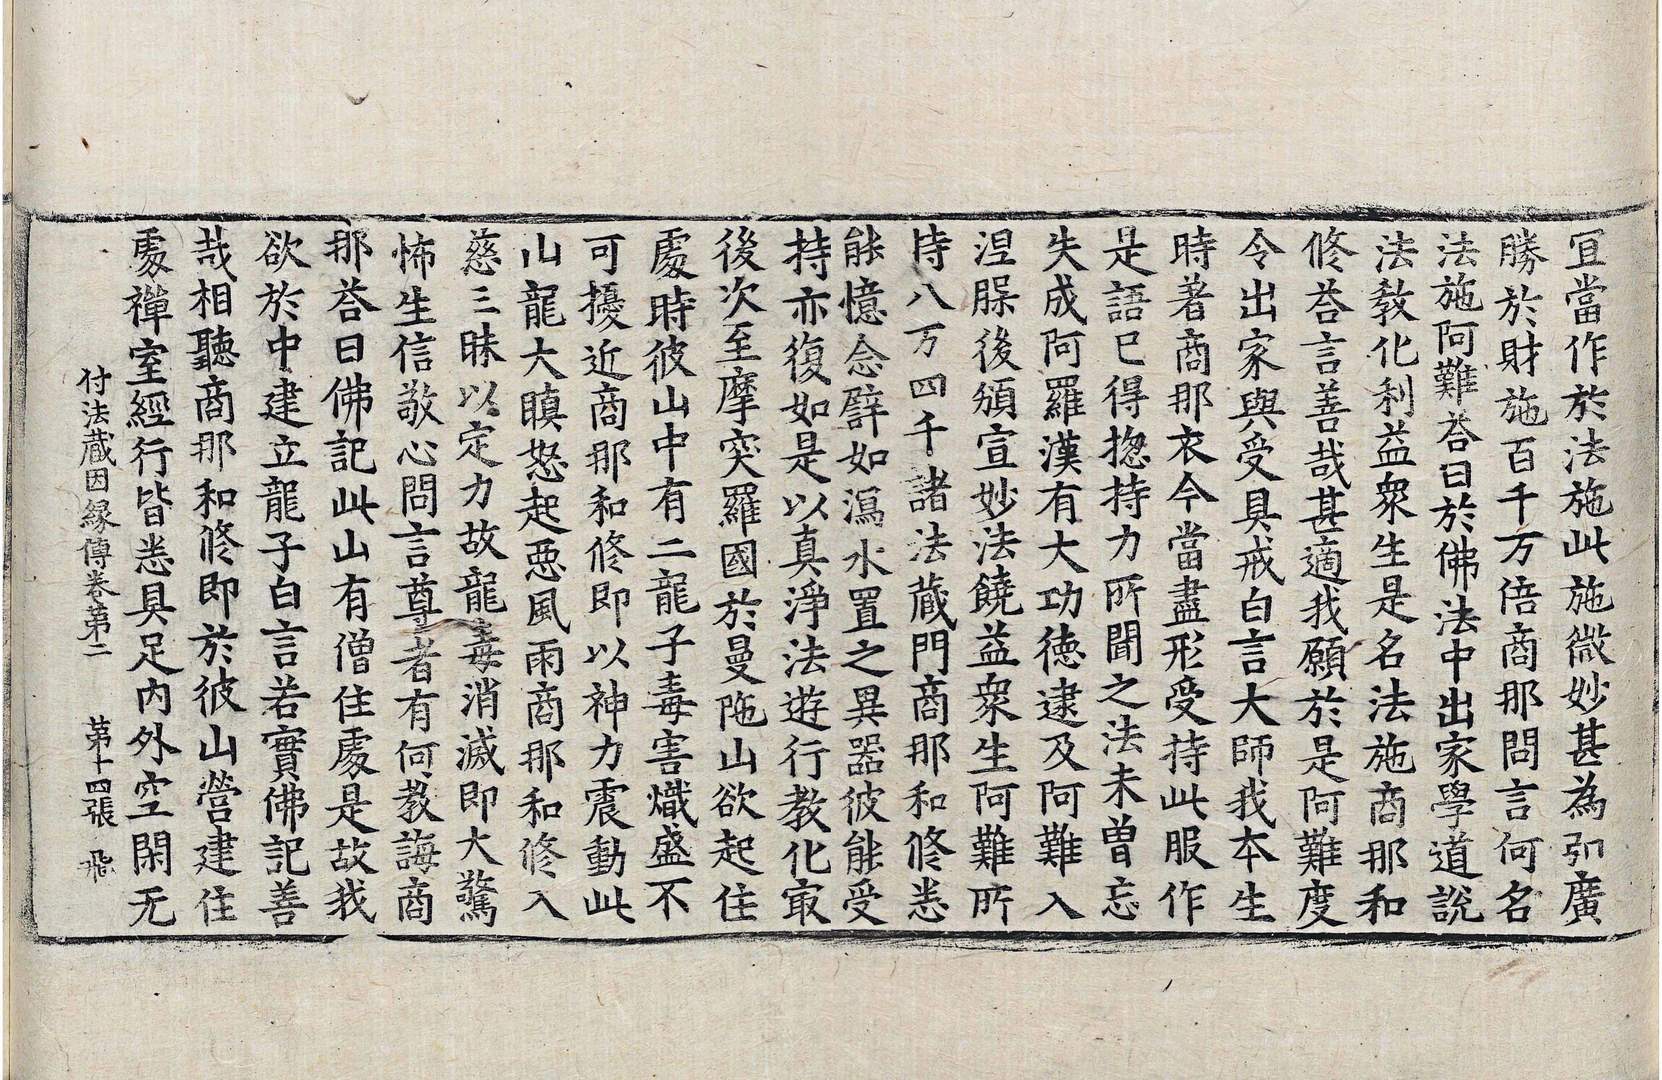 宜當作於法施此施微妙甚為弘廣
勝於財施百千万倍商那問言何名
法施阿難荅曰於佛法中出家學道說
法教化利益衆生是名法施商那和
修荅言善哉甚適我願於是阿難度
令出家與受具戒白言大師我本生
時著商那衣今當盡形受持此服作
是語已得揔持力所聞之法未曽忘
失成阿羅漢有大功德逮及阿難入
涅槃後頒宣妙法饒益衆生阿難所
持八万四千諸法藏門商那和修悉
能憶念譬如瀉水置之異器彼能受
持亦復如是以真淨法遊行教化冣
後次至摩突羅國於曼陁山欲起住
處時彼山中有二龍子毒害熾盛不
可擾近商那和修即以神力震動此
山龍大瞋怒起惡風雨商那和修入
慈三昧以定力故龍毒消滅即大驚
怖生信敬心問言尊者有何教誨商
那荅曰佛記此山有僧住處是故我
欲於中建立龍子白言若實佛記善
哉相聽商那和修即於彼山營建住
處禪室經行皆悉具足內外空閑无
付法藏因緣傳卷第二 第十四張 飛